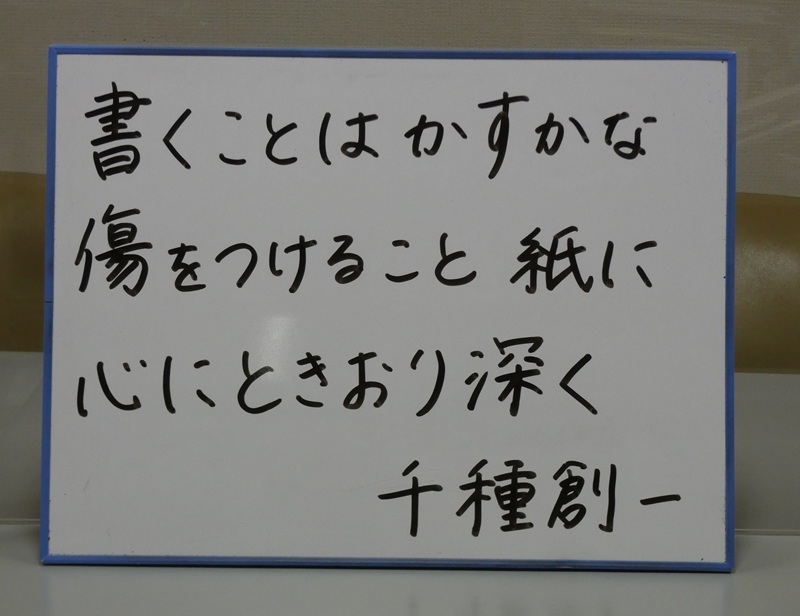 書くことはかすかな
傷をつけること 紙に
心にときおり深く
千種創一